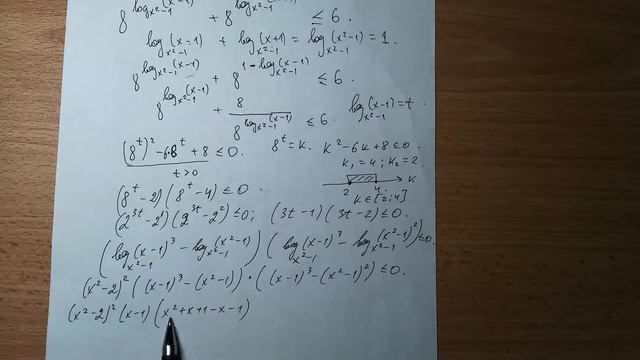 8^{log_{x²-1}(x-1)} + 8^{log_{x²-1}(x+1)} ≤ 6.
log_{x²-1}(x-1) + log_{x²-1}(x+1) = log_{x²-1}(x²-1) = 1.
8^{log_{x²-1}(x-1)} + 8^{1-log_{x²-1}(x-1)} ≤ 6.
8^{log_{x²-1}(x-1)} + 8/8^{log_{x²-1}(x-1)} ≤ 6. log_{x²-1}(x-1) = t.
(8^t)² - 6·8^t + 8 ≤ 0. 8^t = k. k² - 6k + 8 ≤ 0.
t > 0 k₁ = 4; k₂ = 2.
(8^t - 2)(8^t - 4) ≤ 0. 2 4 k
k ∈ [2; 4].
(2^{3t} - 2^1)(2^{3t} - 2²) ≤ 0; (3t - 1)(3t - 2) ≤ 0.
(log_{x²-1}(x-1)³ - log_{x²-1}(x²-1))(log_{x²-1}(x-1)³ - log_{x²-1}(x²-1)²) ≤ 0.
(x²-2)²((x-1)³ - (x²-1))·((x-1)³ - (x²-1)²) ≤ 0.
(x²-2)²(x-1)(x²+x+1-x-1)